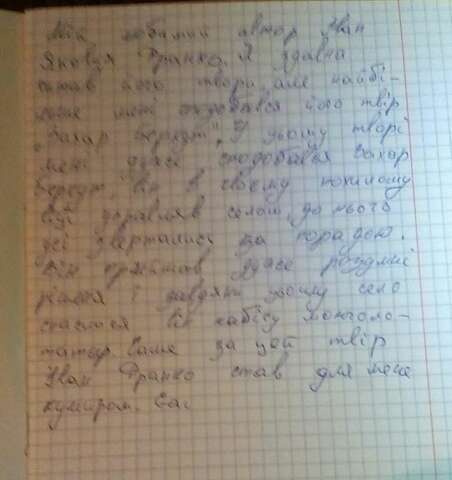 Мій любимий автор Іван
Якович Франко. Я здавна
читав його твори, але найбі-
льше мені сподобався його твір
"Захар Беркут". У цьому творі
мені дуже сподобався Захар
Беркут, він в своєму похилому
віці управляв селом, до нього
усі звертались за порадою.
Він приймав дуже розумні
рішення і завдяки цьому село
спаслося від набігу монголо-
татар. Саме за цей твір
Іван Франко став для мене
кумиром.